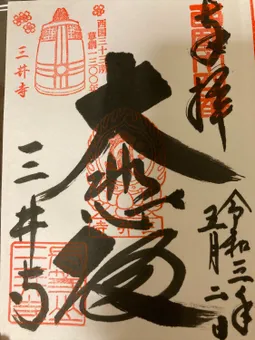 奉拝
令和三年
五月二日
大悲殿
三井寺
西国三十三所
草創一三〇〇年
三井寺